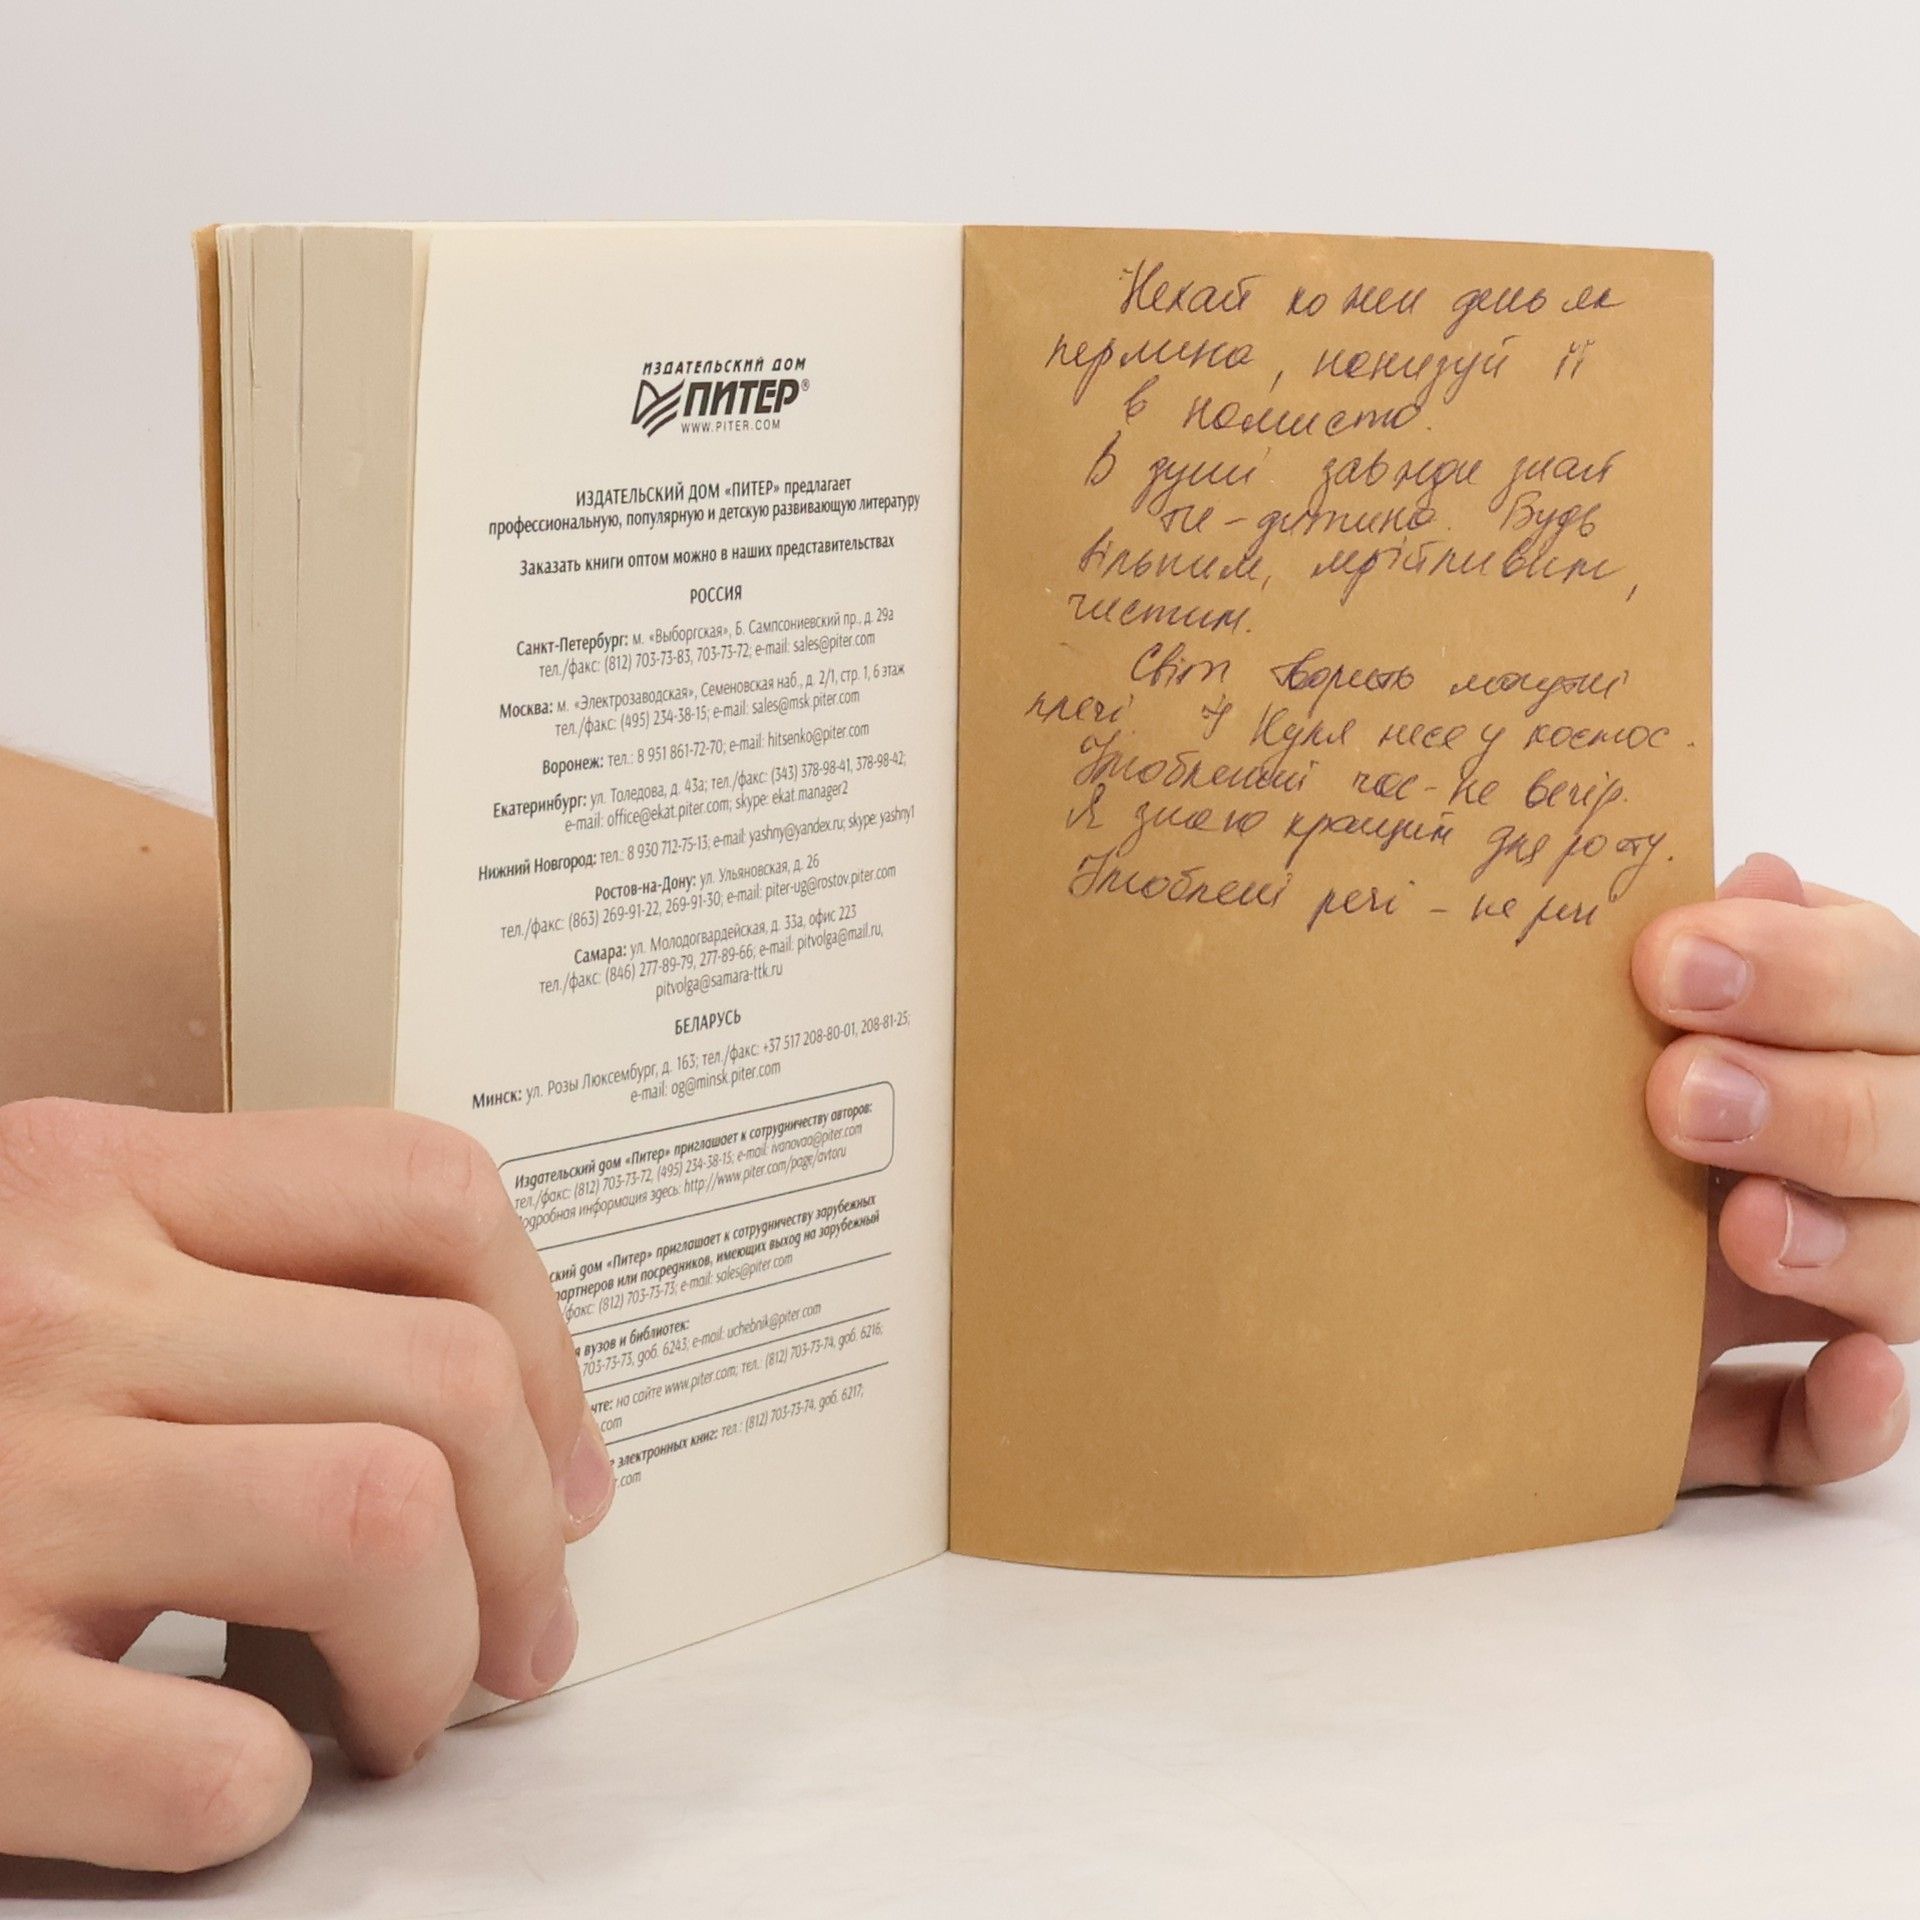 ИЗДАТЕЛЬСКИЙ ДОМ
ПИТЕР®
WWW.PITER.COM
ИЗДАТЕЛЬСКИЙ ДОМ «ПИТЕР» предлагает
профессиональную, популярную и детскую развивающую литературу
Заказать книги оптом можно в наших представительствах
РОССИЯ
Санкт-Петербург: м. «Выборгская», Б. Сампсониевский пр., д. 29а
тел./факс: (812) 703-73-83, 703-73-72; e-mail: sales@piter.com
Москва: м. «Электрозаводская», Семеновская наб., д. 2/1, стр. 1, 6 этаж
тел./факс: (495) 234-38-15; e-mail: sales@msk.piter.com
Воронеж: тел.: 8 951 861-72-70; e-mail: hitsenko@piter.com
Екатеринбург: ул. Толедова, д. 43а; тел./факс: (343) 378-98-41, 378-98-42;
e-mail: office@ekat.piter.com; skype: ekat.manager2
Нижний Новгород: тел.: 8 930 712-75-13; e-mail: yashny@yandex.ru; skype: yashny1
Ростов-на-Дону: ул. Ульяновская, д. 26
тел./факс: (863) 269-91-22, 269-91-30; e-mail: piter-ug@rostov.piter.com
Самара: ул. Молодогвардейская, д. 33а, офис 223
тел./факс: (846) 277-89-79, 277-89-66; e-mail: pitvolga@mail.ru,
pitvolga@samara-ttk.ru
БЕЛАРУСЬ
Минск: ул. Розы Люксембург, д. 163; тел./факс: +37 517 208-80-01, 208-81-25;
e-mail: og@minsk.piter.com
Издательский дом «Питер» приглашает к сотрудничеству авторов:
тел./факс: (812) 703-73-72, (495) 234-38-15; e-mail: ivanovaa@piter.com
Подробная информация здесь: http://www.piter.com/page/avtoru
ский дом «Питер» приглашает к сотрудничеству зарубежных
партнеров или посредников, имеющих выход на зарубежный
/факс: (812) 703-73-73; e-mail: sales@piter.com
я вузов и библиотек:
703-73-73, доб. 6243; e-mail: uchebnik@piter.com
на сайте www.piter.com; тел.: (812) 703-73-74, доб. 6216;
.com
электронных книг: тел.: (812) 703-73-74, доб. 6217;
.com
Нехай кожен день як
перлина, нанизуй її
в намисто.
В душі завжди знай
ти - дитина. Будь
вільним, мрійливим,
чистим.
Світ творять могутні
плечі. Й Куля несе у космос.
Улюблений час - не вечір.
Я знаю кращий для росту.
Улюблені речі - не речі